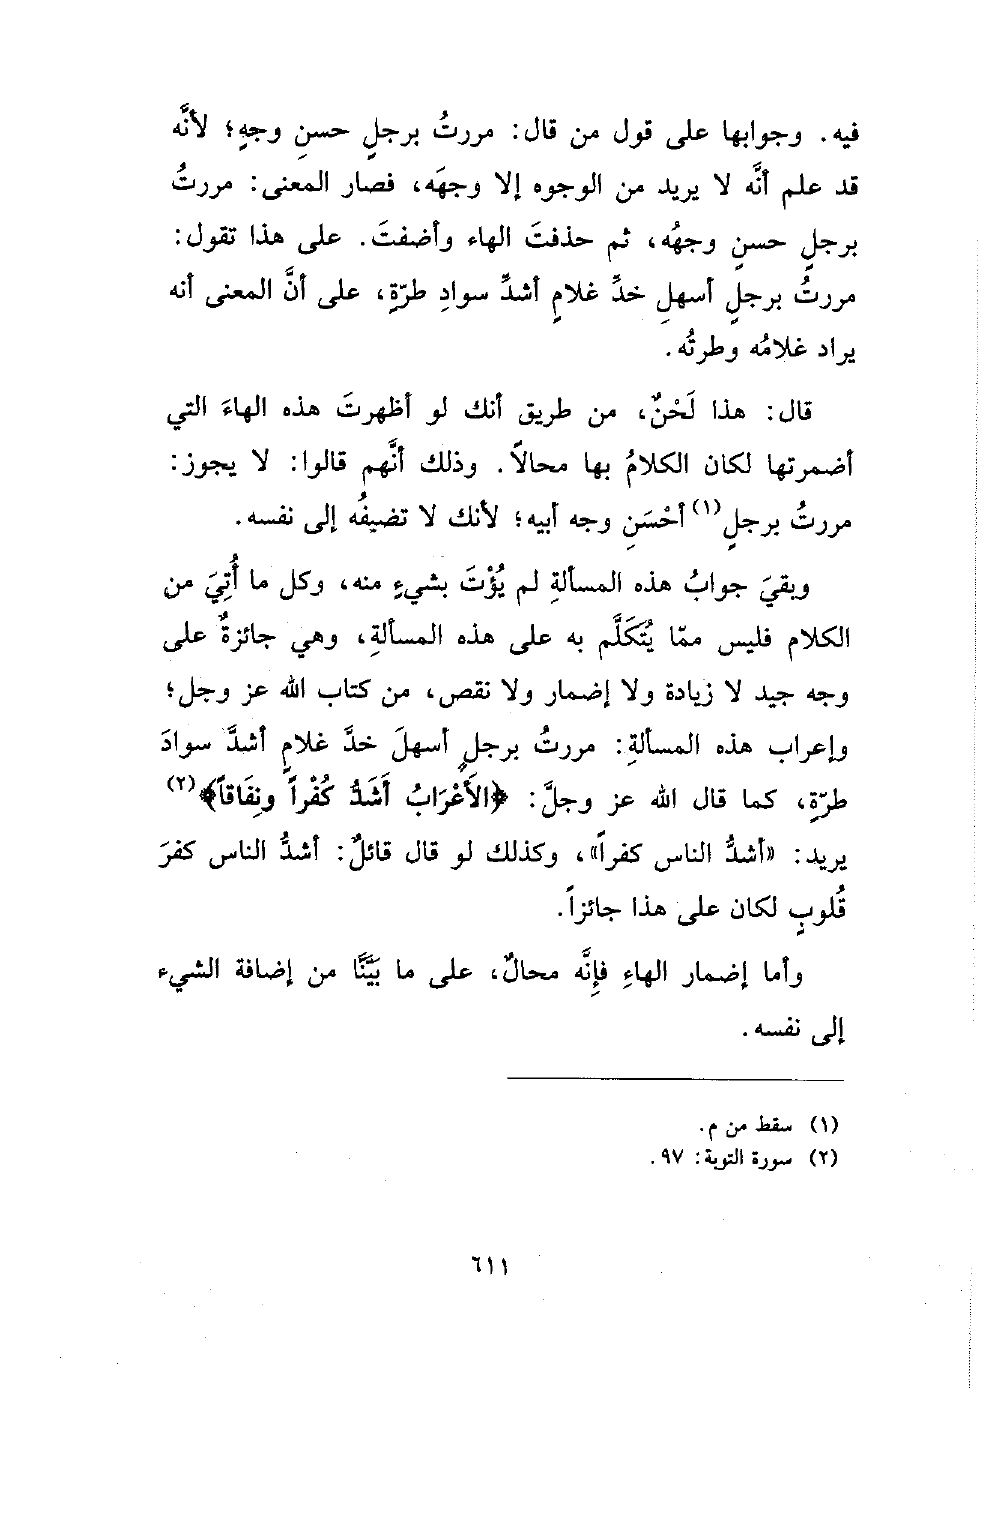 فيه. وجوابها على قول من قال: مررتُ برجلٍ حسنِ وجهٍ؛ لأنَّه
قد علم أنَّه لا يريد من الوجوه إلا وجهَه، فصار المعنى: مررتُ
برجلٍ حسنٍ وجهُه، ثم حذفتَ الهاء وأضفتَ. على هذا تقول:
مررتُ برجلٍ أسهلِ خدِّ غلامٍ أشدِّ سوادِ طرّةٍ، على أنَّ المعنى أنه
يراد غلامُه وطرتُه.
قال: هذا لَحْنٌ، من طريق أنك لو أظهرتَ هذه الهاءَ التي
أضمرتها لكان الكلامُ بها محالاً. وذلك أنَّهم قالوا: لا يجوز:
مررتُ برجلٍ(١) أحْسَنِ وجه أبيه؛ لأنك لا تضيفُه إلى نفسه.
وبقيَ جوابُ هذه المسألةِ لم يُؤْتَ بشيءٍ منه، وكل ما أُتِيَ من
الكلام فليس ممّا يُتَكَلَّم به على هذه المسألةِ، وهي جائزةٌ على
وجه جيد لا زيادة ولا إضمار ولا نقص، من كتاب الله عز وجل؛
وإعراب هذه المسألةِ: مررتُ برجلٍ أسهلَ خدَّ غلامٍ أشدَّ سوادَ
طرّةٍ، كما قال الله عز وجلَّ: ﴿الأَعْرَابُ أَشَدُّ كُفْراً ونِفَاقاً﴾(٢)
يريد: «أشدُّ الناس كفراً»، وكذلك لو قال قائلٌ: أشدُّ الناس كفرَ
قُلوبٍ لكان على هذا جائزاً.
وأما إضمار الهاءِ فإِنَّه محالٌ، على ما بَيَّنَّا من إضافة الشيء
إلى نفسه.
(١) سقط من م.
(٢) سورة التوبة: ٩٧.
٦١١